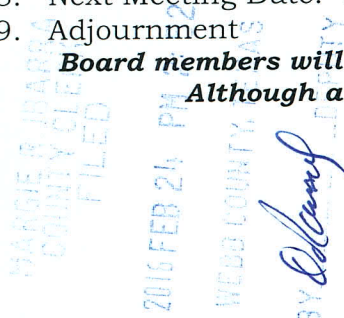 8. Next Meeting Date:
9. Adjournment
Board members will
Although a
MARGIE R. IBARRA
COUNTY CLERK
FILED
2016 FEB 24 PM 2
WEBB COUNTY, TEXAS
BY
DEPUTY